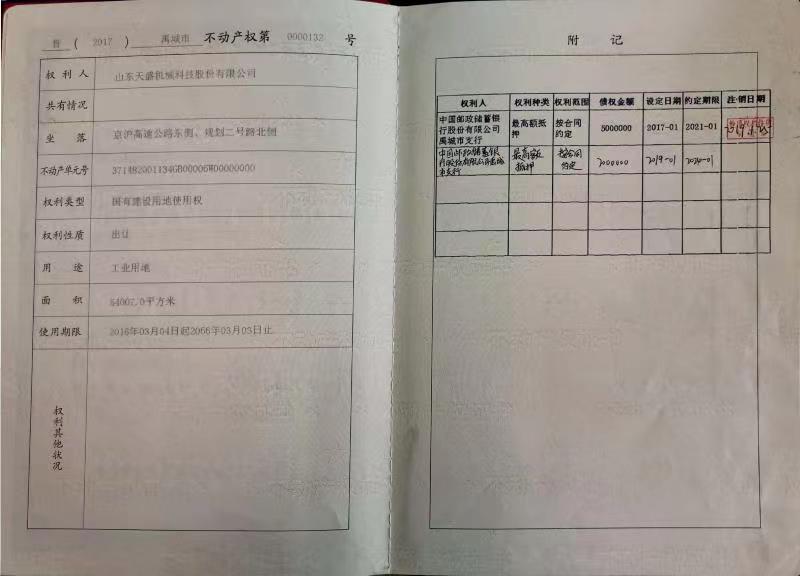 鲁 ( 2017 ) 禹城市 不动产权第 0000132 号
权利人 山东天盛机械科技股份有限公司
共有情况
坐落 京沪高速公路东侧、规划二号路北侧
不动产单元号 371482001134GB00006W00000000
权利类型 国有建设用地使用权
权利性质 出让
用途 工业用地
面积 64007.0平方米
使用期限 2016年03月04日起2066年03月03日止
权利其他状况
附记
权利人 权利种类 权利范围 债权金额 设定日期 约定期限 注销日期
中国邮政储蓄银
行股份有限公司
禹城市支行
最高额抵
押
按合同
约定
5000000 2017-01 2021-01
中国邮政储蓄银
行股份有限公司禹城
市支行
最高额
抵押
按合同
约定
2019-01